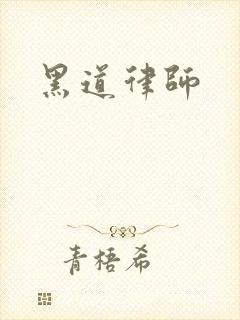 黑道律師
青梧希